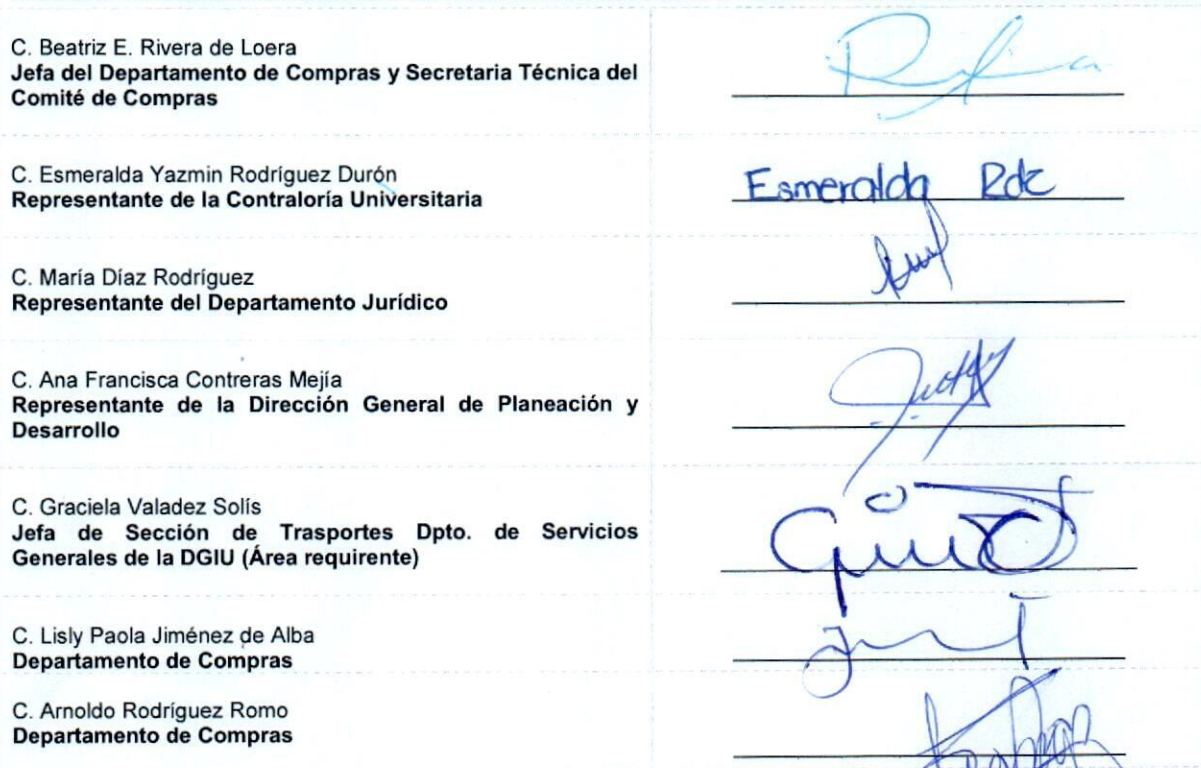 C. Beatriz E. Rivera de Loera
Jefa del Departamento de Compras y Secretaria Técnica del
Comité de Compras
C. Esmeralda Yazmin Rodríguez Durón
Representante de la Contraloría Universitaria
Esmeralda Rdz
C. María Díaz Rodríguez
Representante del Departamento Jurídico
C. Ana Francisca Contreras Mejía
Representante de la Dirección General de Planeación y
Desarrollo
C. Graciela Valadez Solís
Jefa de Sección de Trasportes Dpto. de Servicios
Generales de la DGIU (Área requirente)
C. Lisly Paola Jiménez de Alba
Departamento de Compras
C. Arnoldo Rodríguez Romo
Departamento de Compras